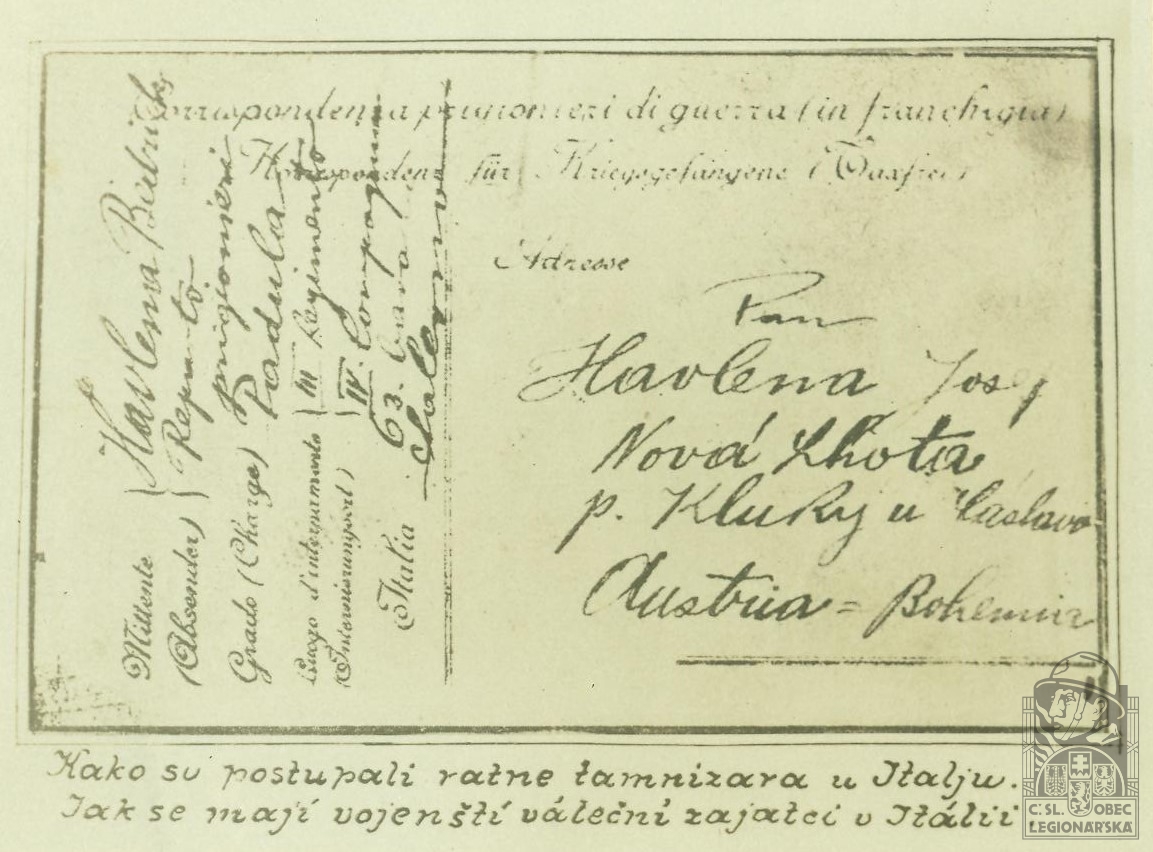 Corrispondenza prigionieri di guerra (in franchigia)
Korrespondenz für Kriegsgefangene (Taxfrei)
Mittente
(Absender)
Havlena
Reparto
prigionieri
Grado (Charge)
Padula
Luogo d'internamento
(Internierungsort)
III Regimento
IV. Compagnia
63.
Italia
Salerno
Adresse
Pan
Havlena Josef
Nová Lhota
p. Kluky u Čáslavi
Austria = Bohemia
Kako su postupali ratne tamnizara u Italju.
Jak se mají vojenští váleční zajatci v Itálii.
Č.SL. OBEC
LEGIONÁŘSKÁ